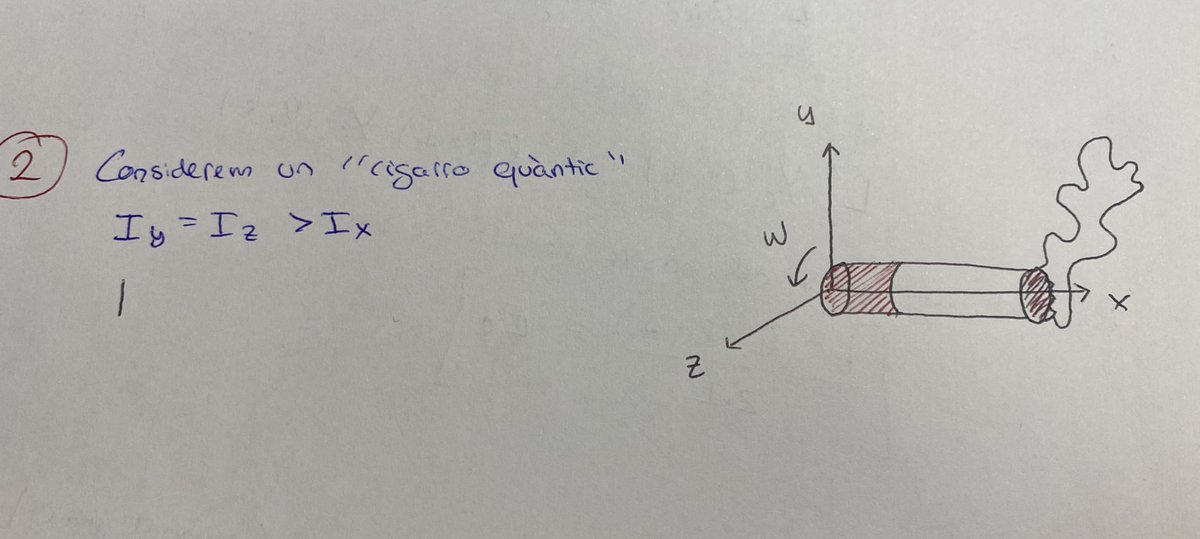 2 Considerem un "cigarro quàntic"
Iy = Iz > Ix
y
w
x
z